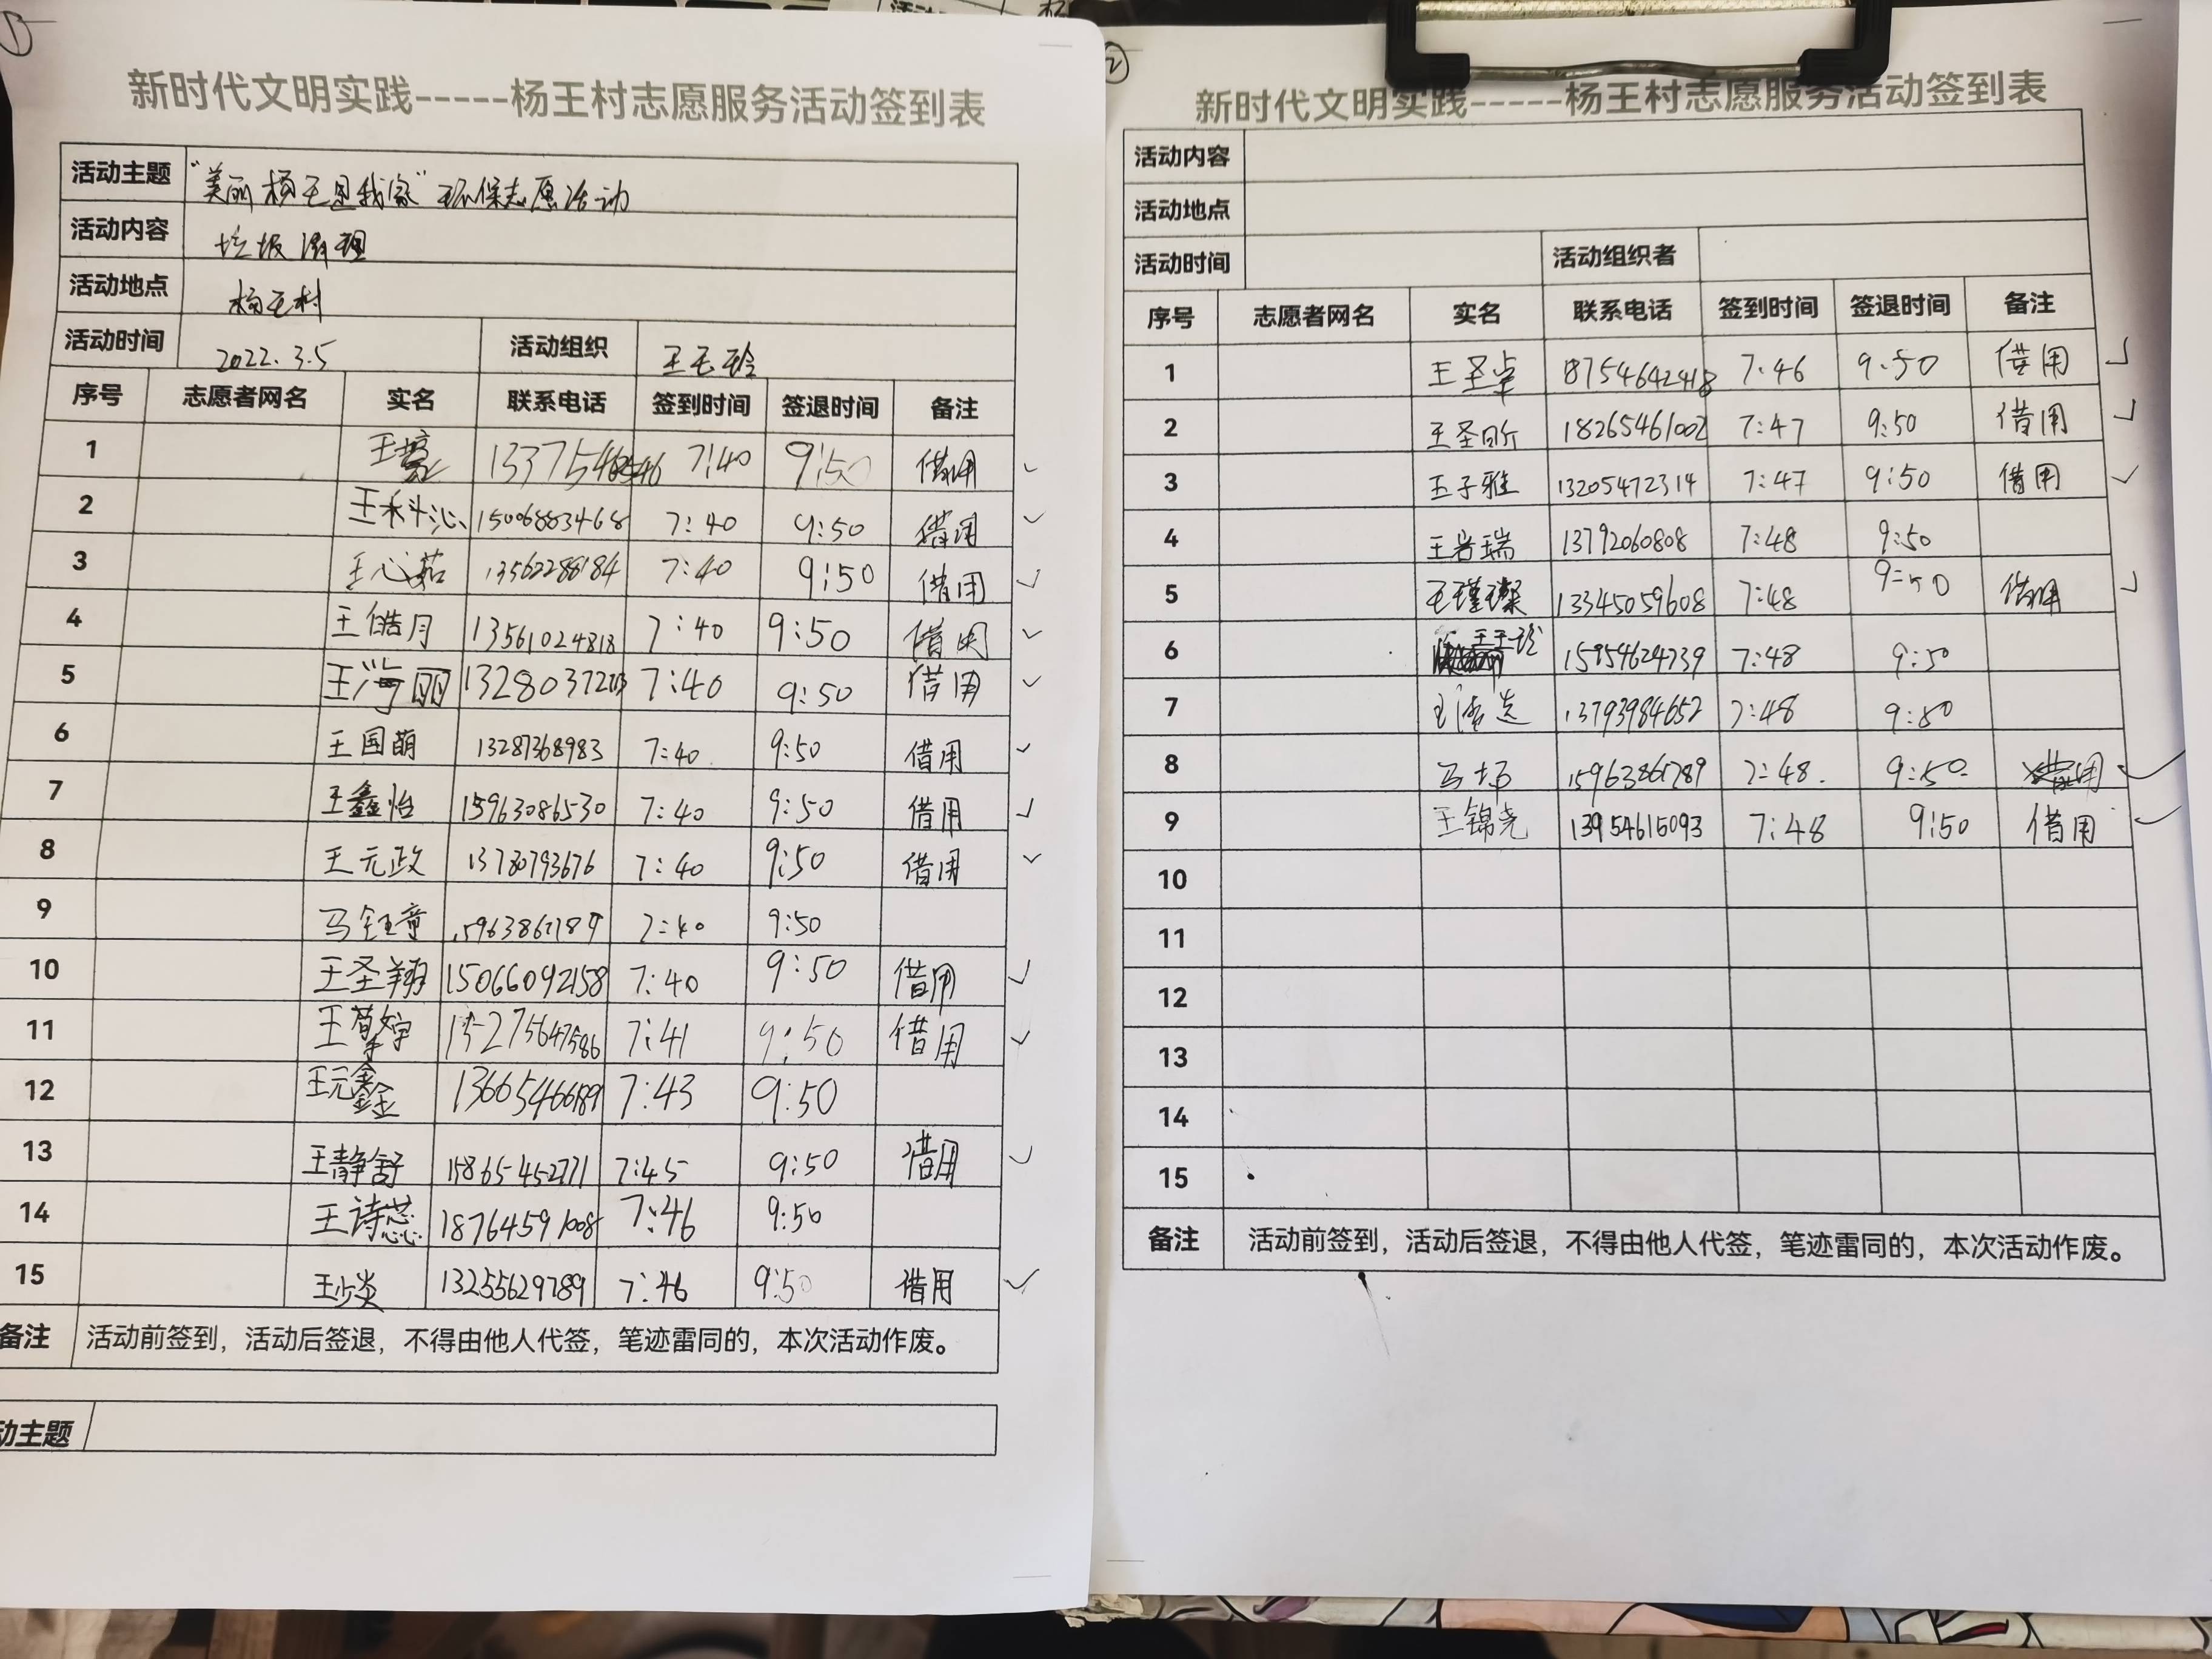 ①
新时代文明实践-----杨王村志愿服务活动签到表
活动主题 "美丽杨王是我家"环保志愿活动
活动内容 垃圾清理
活动地点 杨王村
活动时间 2022.3.5 活动组织 王玉玲
序号 志愿者网名 实名 联系电话 签到时间 签退时间 备注
1 7:40 9:50 借用
2 王科沁 15006883468 7:40 9:50 借用
3 王心茹 13562286184 7:40 9:50 借用
4 王皓月 13561024818 7:40 9:50 借用
5 王海丽 7:40 9:50 借用
6 王国萌 13287368983 7:40 9:50 借用
7 王鑫怡 15963086530 7:40 9:50 借用
8 王元政 13780793676 7:40 9:50 借用
9 马钰童 7:40 9:50
10 王圣翔 15066092158 7:40 9:50 借用
11 15275647586 7:41 9:50 借用
12 王元鑫 7:43 9:50
13 王静舒 15865452771 7:45 9:50 借用
14 王诗蕊 18764591008 7:46 9:50
15 13255629789 7:46 9:50 借用
备注 活动前签到，活动后签退，不得由他人代签，笔迹雷同的，本次活动作废。
动主题
②
新时代文明实践-----杨王村志愿服务活动签到表
活动内容
活动地点
活动时间 活动组织者
序号 志愿者网名 实名 联系电话 签到时间 签退时间 备注
1 王圣卓 18754642418 7:46 9:50 借用
2 王圣昕 18265461002 7:47 9:50 借用
3 王子雅 13205472314 7:47 9:50 借用
4 王岩瑞 13792060808 7:48 9:50
5 王瑾璨 13345059608 7:48 9:50 借用
6 王玉珍 15954624739 7:48 9:50
7 13793984652 7:48 9:50
8 7:48 9:50 借用
9 王锦尧 13954615093 7:48 9:50 借用
10
11
12
13
14
15
备注 活动前签到，活动后签退，不得由他人代签，笔迹雷同的，本次活动作废。